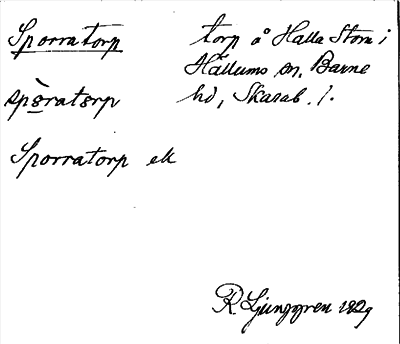 Sporratorp
torp å Halla Stom i
Hällums sn, Barne
hd, Skarab. l.
spòratorp
Sporratorp ek
R. Ljunggren 1829